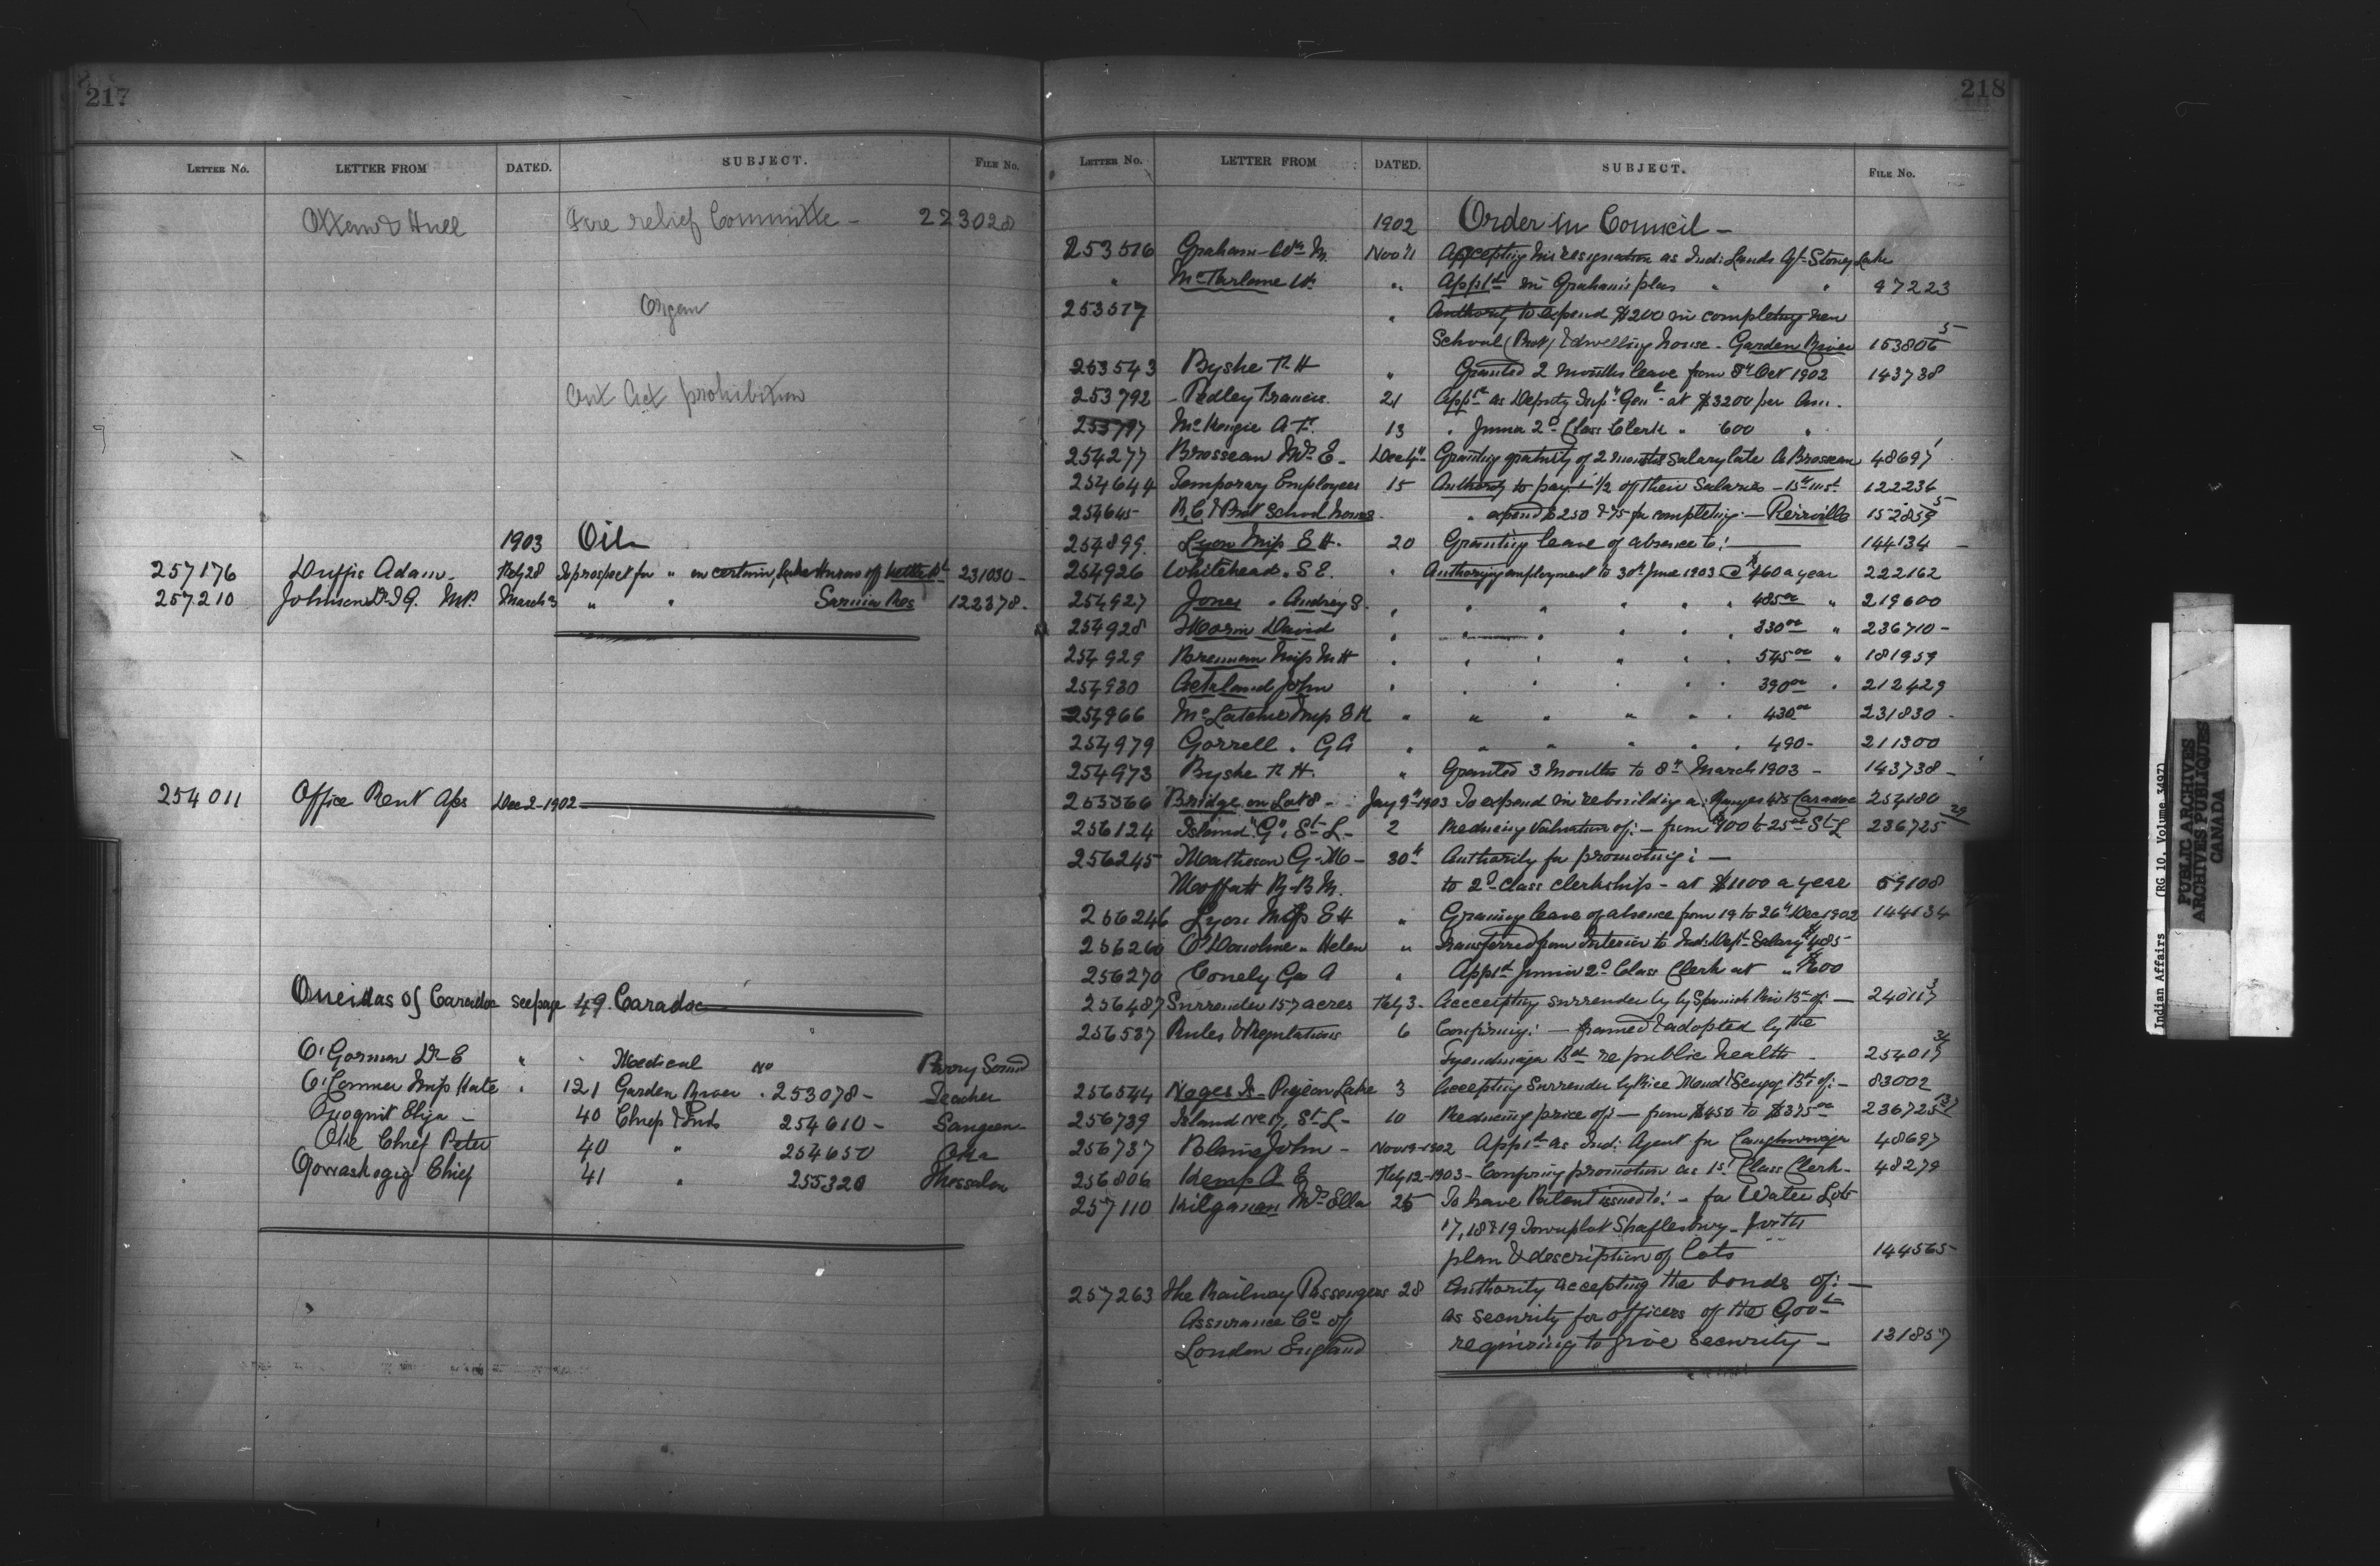 217
LETTER NO. LETTER FROM DATED. SUBJECT. FILE No.
Ottawa & Hull Fire relief Committe - 223028
Organ
Act prohibition
1903 Oil
257176 Duffie Adam Feby 28 To prospect for " on certain, Lake Huron off Kettle Pt 231030 -
257210 Johnson Dr. I.G. M.P. March 3 " " Sarnia Res 122378.
254011 Office Rent Dec 2 - 1902
Oneidas of Caradoc see page 49. Caradoc
O'Gorman Dr E " Medical No Parry Sound
O'Connor Miss Kate . 121 Garden River . 253078 - Teacher
Eliza - 40 Chief & Inds 254610 - Saugeen
Oke Chief Peter 40 " 254650 Oka
Chief 41 " 255320 Thessalon
218
LETTER NO. LETTER FROM DATED. SUBJECT. FILE No.
1902 Order in Council -
253516 Graham Wm M. Nov 11 Accepting his resignation as Ind: Lands Agt Stoney Lake
" McFarlane W. " Apptd in Graham's place " " 97223
253517 " Authority to expend $200 in completing new
School (Prot) & dwelling house - Garden River 153806 5
253543 Byshe R H " Granted 2 months leave from 8th Oct 1902 143738
253792 - Pedley Francis. 21 Apptd as Deputy Supt Genl at $3200 per Ann.
253797 McKenzie A F. 13 " Junior 2d Class Clerk " 600 "
254277 Brosseau Mrs E - Dec 4th Granting gratuity of 2 months salary late A Brosseau 48697 1
254644 Temporary Employees 15 Authority to pay 1/2 of their Salaries - 15th inst 122234
254645 R.C. & Prot School houses. " expend $250 & 75 for completing: - Pierreville 152859 5
254899. Lyon Miss E H. 20 Granting leave of absence to: 144134 -
254926 Whitehead " S E. " Authorizing employment to 30th June 1903 @ $460 a year 222162
254927 Jones " Audrey S. " " " " " " 485.00 " 219600
254928 Morin David " " " " " " 330.00 " 236710 -
254929 Brennan Miss M H " " " " " " 545.00 " 181959
254930 Ackland John " " " " " " 390.00 " 212429
254966 McLatchie Miss E H " " " " " " 430.00 231830 -
254979 Gorrell . G A " " " " " " 490 - 211300
254973 Byshe R H. " Granted 3 Months to 8th March 1903 - 143738 -
255366 Bridge on Lot 8 - Jany 9th 1903 To expend in rebuilding a: Range 4 $75 Caradoc 254180
256124 Island "G", St. L - 2 Reducing Valuation of: - from $100 to 25.00 St L 236725 29
256245 Matheson G. M - 30th Authority for promoting: -
Moffatt R. B M. to 2d class clerkship - at $1100 a year 59108
256246 Lyon Miss E H " Granting leave of absence from 19 to 26th Dec 1902 144134
256260 O'Donohue " Helen " Transferred from Interior to Ind: Dept Salary $485 -
256270 Conely Geo A " Apptd Junior 2d Class Clerk at " $600
256487 Surrender 157 acres Feby 3. Accepting surrender by Spanish River Bd of: - 240117 3
256537 Rules & Regulations 6 Confirming: - framed & adopted by the
Tyendinaga Bd re public health - 254017 34
256544 Noges Is - Pigeon Lake 3 Accepting Surrender by Rice Mud & Scugog Bds of: - 83002
256739 Island No 17, St L - 10 Reducing price of: - from $450 to $375.00 236725 13
256737 Blain John - Nov 19 - 1902 Apptd as Ind: Agent for Caughnawaga 48697
256806 Kemp A E Feby 12 - 1903 - Confirming promotion as 1st Class Clerk - 48279
257110 Kilganan Mrs Ella 25 To have Patent issued to: - for Water Lots
17, 18 & 19 Townplot Shaftesbury - forth
plan & description of lots 144565 -
257263 The Railway Passengers 28 Authority accepting the bonds of: -
Assurance Co of as security for officers of the Govt
London England requiring to give security - 131857
Indian Affairs (RG 10, Volume 3497)
PUBLIC ARCHIVES
ARCHIVES PUBLIQUES
CANADA